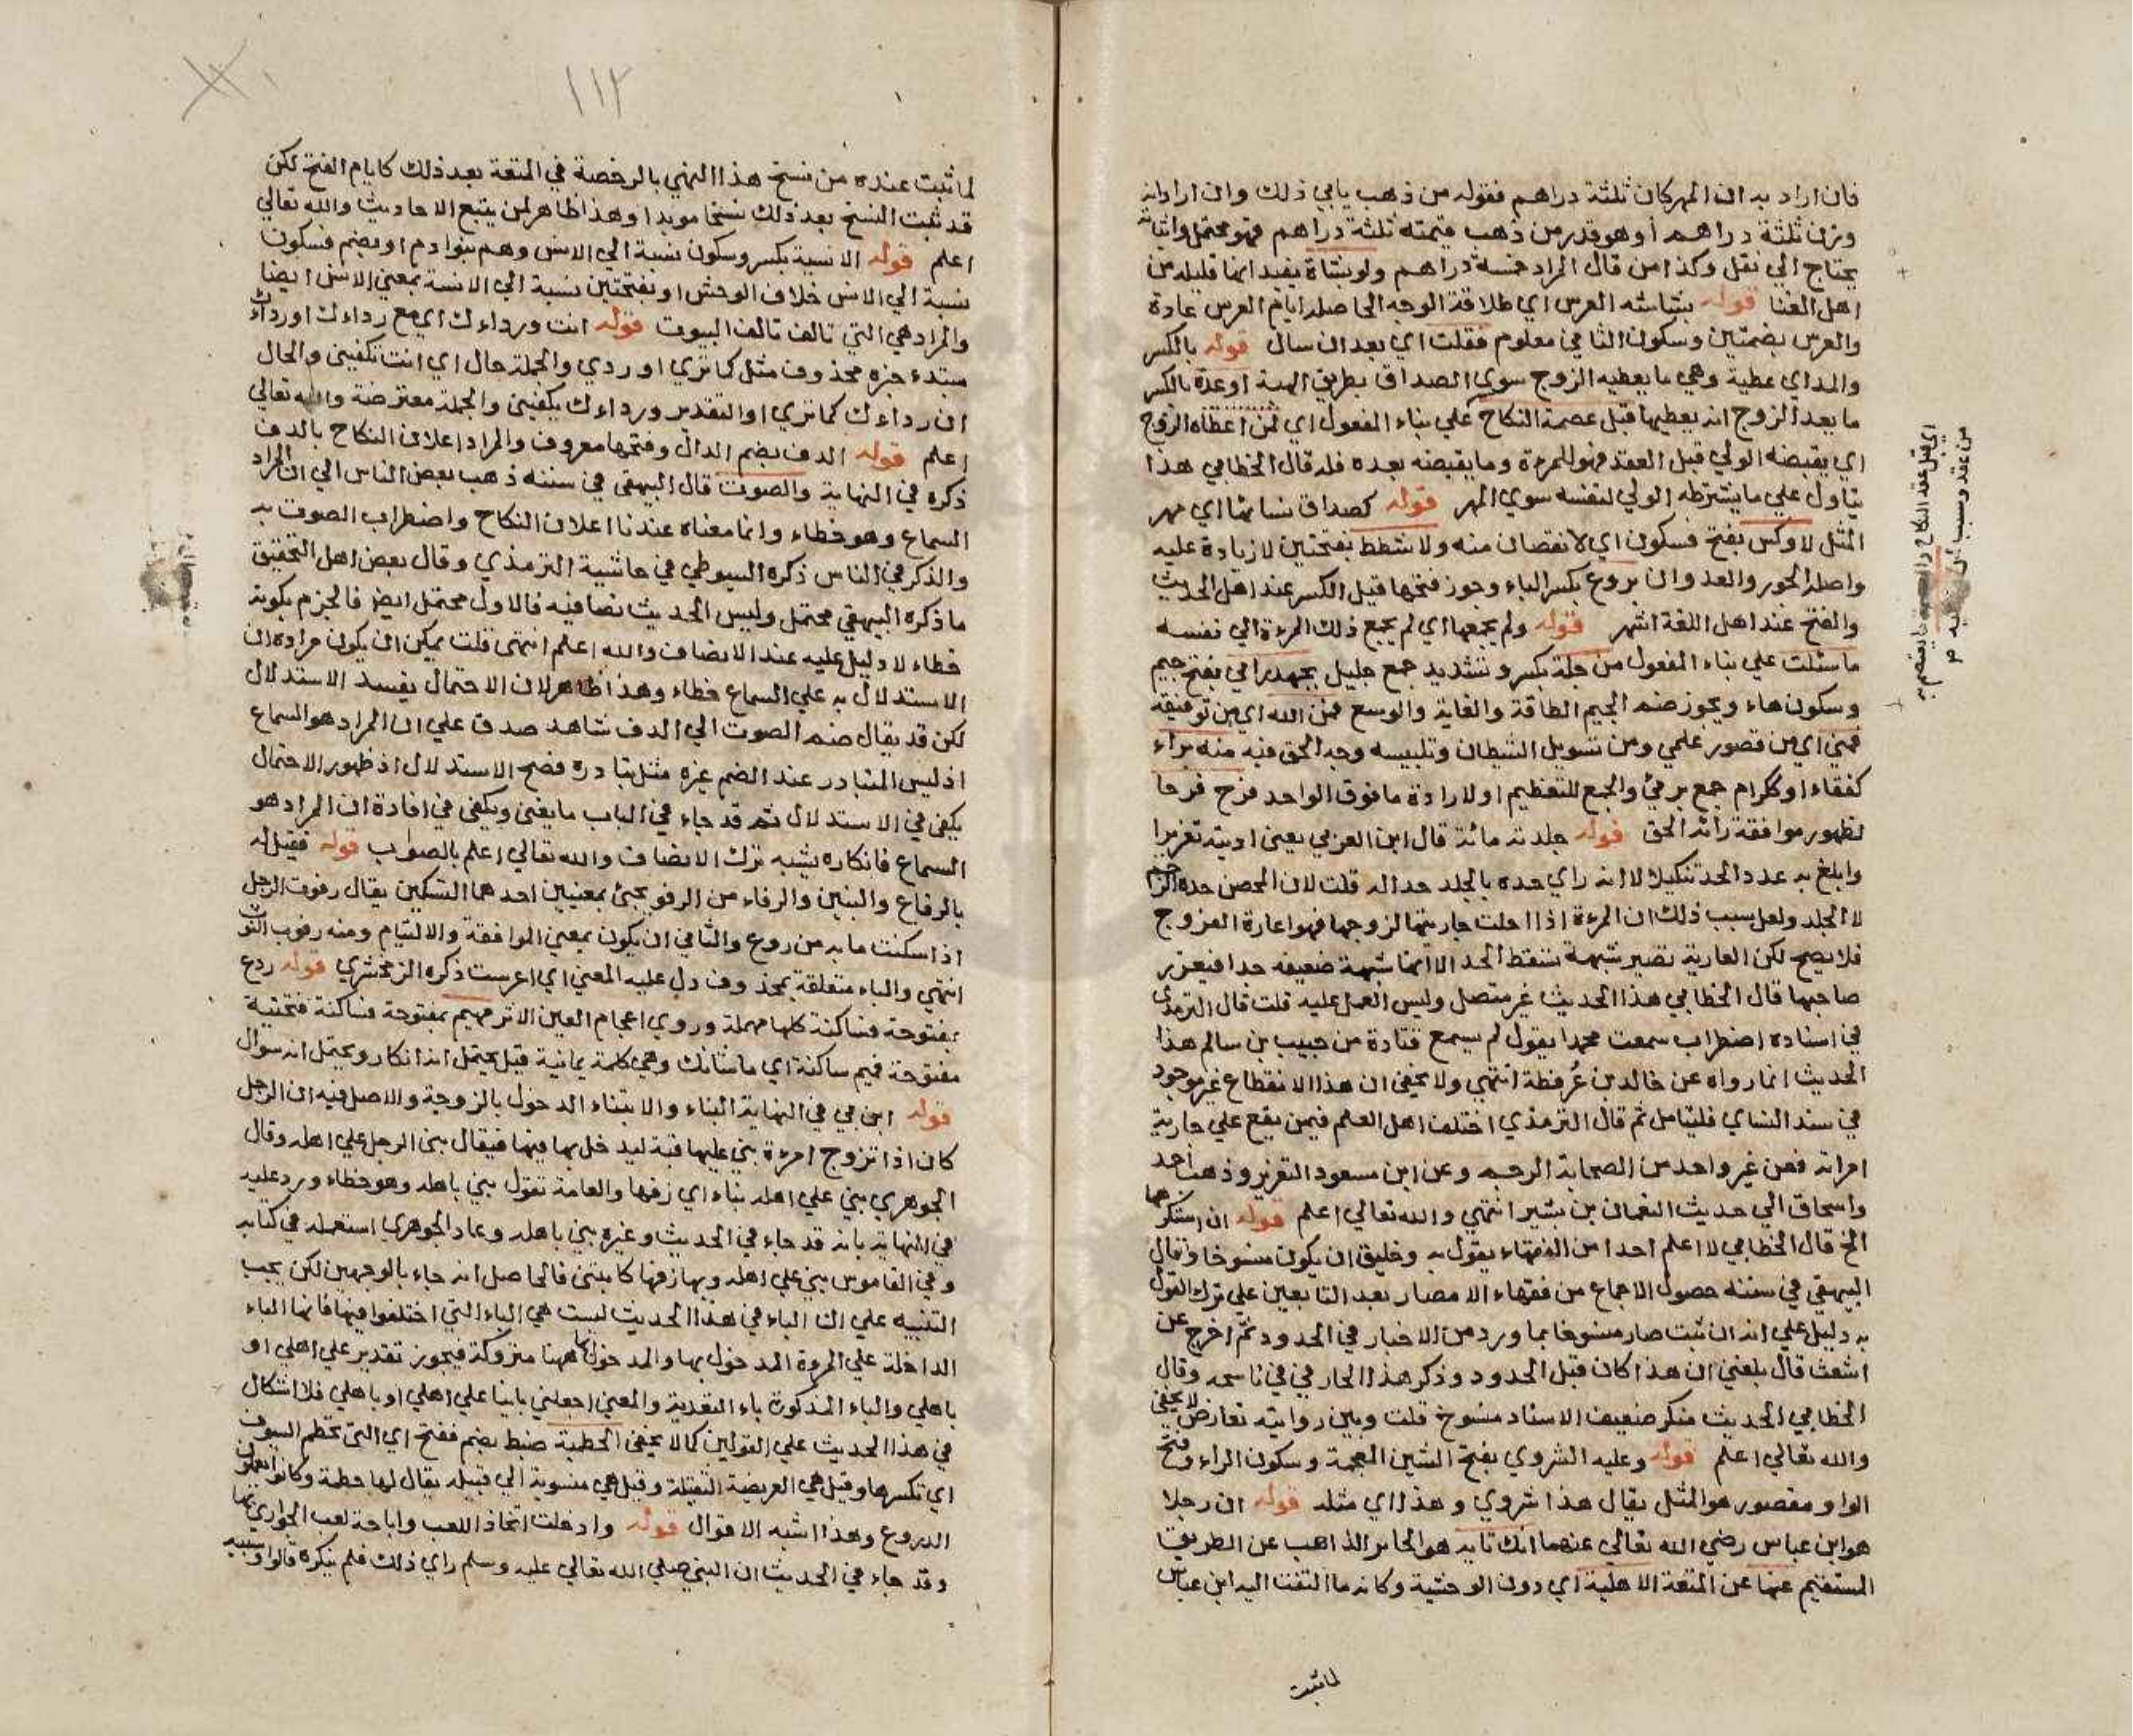 فان اراد به ان المهر كان ثلثة دراهم فقوله من ذهب يابي ذلك وان اراد انه
وزن ثلثة دراهم أو هو قدر من ذهب قيمته ثلثة دراهم فهو محتمل واثباته
يحتاج الي نقل وكذا من قال المراد خمسة دراهم ولو بشاة يفيد انها قليلة من
اهل الغنا قوله بشاشة العرس اي طلاقة الوجه الحاصلة ايام العرس عادة
والعرس بضمتين وسكون الثاني معلوم فقلت اي بعد ان سال قوله بالكسر
والمد اي عطية وهي ما يعطيه الزوج سوي الصداق بطريق الهبة او عدة بالكسر
ما يعد الزوج انه يعطيها قبل عصمة النكاح علي بناء المفعول اي لمن اعطاه الزوج
اي يقبضه الولي قبل العقد فهو للمرءة وما يقبضه بعده فله قال الخطابي هذا
يتاول علي ما يشترطه الولي لنفسه سوي المهر قوله كصداق نسائها اي مهر
المثل لا وكس بفتح فسكون اي لا نقصان منه ولا شطط بفتحتين لا زيادة عليه
واصله الجور والعدوان بروع بكسر الباء وجوز فتحها قيل الكسر عند اهل الحديث
والفتح عند اهل اللغة اشهر قوله ولم يجمعها اي لم يجمع ذلك المرءة الي نفسه
ما سئلت علي بناء المفعول من جلة بكسر وتشديد جمع جليل بجهد رايي بفتح جيم
وسكون هاء ويجوز ضم الجيم الطاقة والغاية والوسع فمن الله اي من توفيقه
فمني اي من قصور علمي ومن تسويل الشيطان وتلبيسه وجه الحق فيه منه براء
كفقهاء او ككرام جمع بريئ والجمع للتعظيم او لارادة ما فوق الواحد فرح فرحا
لظهور موافقة رائه الحق قوله جلدته مائة قال ابن العربي يعني ادبته تعزيرا
وابلغ به عدد الحد تنكيلا لا انه راي حده بالجلد حدا له قلت لان المحصن حده الرجم
لا الجلد ولعل سبب ذلك ان المرءة اذا احلت جاريتها لزوجها فهو اعارة الفروج
فلا يصح لكن العارية تصير شبهة تسقط الحد الا انها شبهة ضعيفه جدا فيعزر
صاحبها قال الخطابي هذا الحديث غير متصل وليس العمل عليه قلت قال الترمذي
في اسناده اضطراب سمعت محمدا يقول لم يسمع قتادة من حبيب بن سالم هذا
الحديث انما رواه عن خالد بن عُرفطة انتهي ولا يخفي ان هذا الانقطاع غير موجود
في سند النساي فليتامل ثم قال الترمذي اختلف اهل العلم فيمن يقع علي جارية
امراته فعن غير واحد من الصحابة الرجم وعن ابن مسعود التعزير وذهب احمد
واسحاق الي حديث النعمان بن بشير انتهي والله تعالي اعلم قوله ان استكرهها
الخ قال الخطابي لا اعلم احدا من الفقهاء يقول به وخليق ان يكون منسوخا وقال
البيهقي في سننه حصول الاجماع من فقهاء الامصار بعد التابعين علي ترك القول
به دليل علي انه ان ثبت صار منسوخا بما ورد من الاخبار في الحدود ثم اخرج عن
اشعث قال بلغني ان هذا كان قبل الحدود وذكر هذا الحازمي في ناسخه وقال
الخطابي الحديث منكر ضعيف الاسناد منسوخ قلت وبين روايته تعارض لا يخفي
والله تعالي اعلم قوله وعليه الشروي بفتح الشين المعجمة وسكون الراء وفتح
الواو مقصور هو المثل يقال هذا شروي وهذا اي مثله قوله ان رجلا
هو ابن عباس رضي الله تعالي عنهما انك تايه هو الحائر الذاهب عن الطريق
المستقيم عنها عن المتعة الاهلية اي دون الوحشية وكانه ما التفت اليه ابن عباس
لما ثبت
١١٢
لما ثبت عنده من نسخ هذا النهي بالرخصة في المتعة بعد ذلك كايام الفتح لكن
قد ثبت النسخ بعد ذلك نسخا موبدا وهذا ظاهر لمن يتبع الاحاديث والله تعالي
اعلم قوله الانسية بكسر وسكون نسبة الي الانس وهم بنوادم او بضم فسكون
نسبة الي الانس خلاف الوحش او بفتحتين نسبة الي الانسة بمعني الانس ايضا
والمراد هي التي تالف تالف البيوت قوله انت ورداءك اي مع رداءك او رداءك
مبتدء خبره محذوف مثل كما تري او ردي والجملة حال اي انت تكفيني والحال
ان رداءك كما تري او التقدير ورداءك يكفيني والجملة معترضة والله تعالي
اعلم قوله الدف بضم الدال وفتحها معروف والمراد اعلان النكاح بالدف
ذكره في النهاية والصوت قال البيهقي في سننه ذهب بعض الناس الي ان المراد
السماع وهو خطاء وانما معناه عندنا اعلان النكاح واضطراب الصوت به
والذكر في الناس ذكره السيوطي في حاشية الترمذي وقال بعض اهل التحقيق
ما ذكره البيهقي محتمل وليس الحديث نصا فيه فالاول محتمل ايضا فالجزم بكونه
خطاء لا دليل عليه عند الانصاف والله اعلم انتهي قلت يمكن ان يكون مراده ان
الاستدلال به علي السماع خطاء وهذا ظاهر لان الاحتمال يفسد الاستدلال
لكن قد يقال ضم الصوت الي الدف شاهد صدق علي ان المراد هو السماع
اذ ليس المتبادر عند الضم غيره مثل تبادره فصح الاستدلال اذ ظهور الاحتمال
يكفي في الاستدلال ثم قد جاء في الباب ما يغني ويكفي في افادة ان المراد هو
السماع فانكاره يشبه ترك الانصاف والله تعالي اعلم بالصواب قوله فقيل له
بالرفاء والبنين والرفاء من الرفو يجئ بمعنيين احدهما التسكين يقال رفوت الرجل
اذا سكنت ما به من روع والثاني ان يكون بمعني الموافقة والالتيام ومنه رفوت الثوب
انتهي والباء متعلقة بمحذوف دل عليه المعني اي اعرست ذكره الزمخشري قوله ردع
بمفتوحة فساكنة كلها مهملة وروي اعجام العين الاثر مهيم بمفتوحة فساكنة فتحتية
مفتوحة فميم ساكنة اي ما شانك وهي كلمة يمانية قيل يحتمل انه انكار ويحتمل انه سوال
قوله ابن بي في النهاية البناء والابتناء الدخول بالزوجة والاصل فيه ان الرجل
كان اذا تزوج امرءة بني عليها قبة ليدخل بها فيها فيقال بني الرجل علي اهله وقال
الجوهري بني علي اهله بناء اي زفها والعامة تقول بني باهله وهو خطاء ورد عليه
في النهاية بانه قد جاء في الحديث وغيره بني باهله وعاد الجوهري استعمله في كتابه
وفي القاموس بني علي اهله وبها زفها كابتني فالحاصل انه جاء بالوجهين لكن يجب
التنبيه علي ان الباء في هذا الحديث ليست هي الباء التي اختلفوا فيها فانها الباء
الداخلة علي المروة المدخول بها والمدخول بها ههنا متروكة فيجوز تقدير علي اهلي او
باهلي والباء المذكورة باء التعدية والمعني اجعلني بانيا علي اهلي او باهلي فلا اشكال
في هذا الحديث علي القولين كما لا يخفي الحطمية ضبط بضم ففتح اي التي تحطم السيوف
اي تكسرها وقيل هي العريضة الثقيلة وقيل هي منسوبة الي قبيلة يقال لها حطمة وكانوا يعملون
الدروع وهذا اشبه الاقوال قوله وادخلت اتخاذ اللعب واباحة لعب الجواري بها
وقد جاء في الحديث ان النبي صلي الله تعالي عليه وسلم راي ذلك فلم ينكره قالوا وسببه